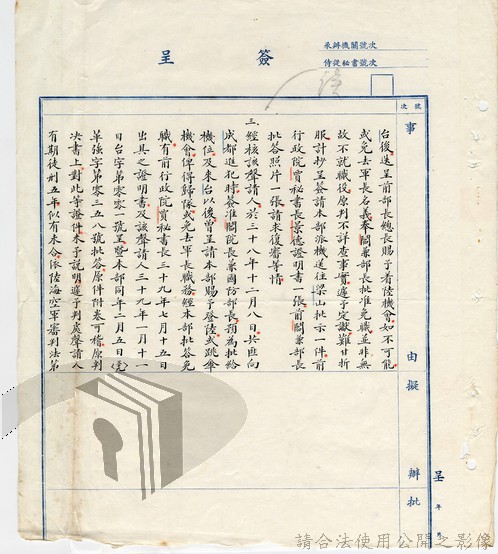 簽呈
承辦機關號次
侍從秘書號次
號次
事由
擬辦
批
呈
年
台後逕呈前部長總長賜予着陸機會如不可能
或免去軍長名義奉閻兼部長批准免職並非無
故不就職役原判不詳查事實遽予定讞難甘折
服計抄呈簽請本部派機送往梁山批示一件前
行政院賈秘書長景德證明書一張前閻兼部長
批答照片一張請求復審等情
三、經核該聲請人於三十八年十二月八日共匪向
成都進犯時簽准閻院長兼國防部長預為批給
機位及來台以後曾呈請本部賜予登陸或跳傘
機會俾得歸隊或免去軍長職務經本部批答免
職有前行政院賈秘書長三十九年七月十五日
出具之證明書及該聲請人三十九年一月十一
日台字第零零一號呈暨本部同年二月五日(39)
單強字第零三五八號批答原件附卷可稽原判
決書上對此等證件未予說明遽予判處聲請人
有期徒刑五年似有未合依陸海空軍審判法第
請合法使用公開之影像